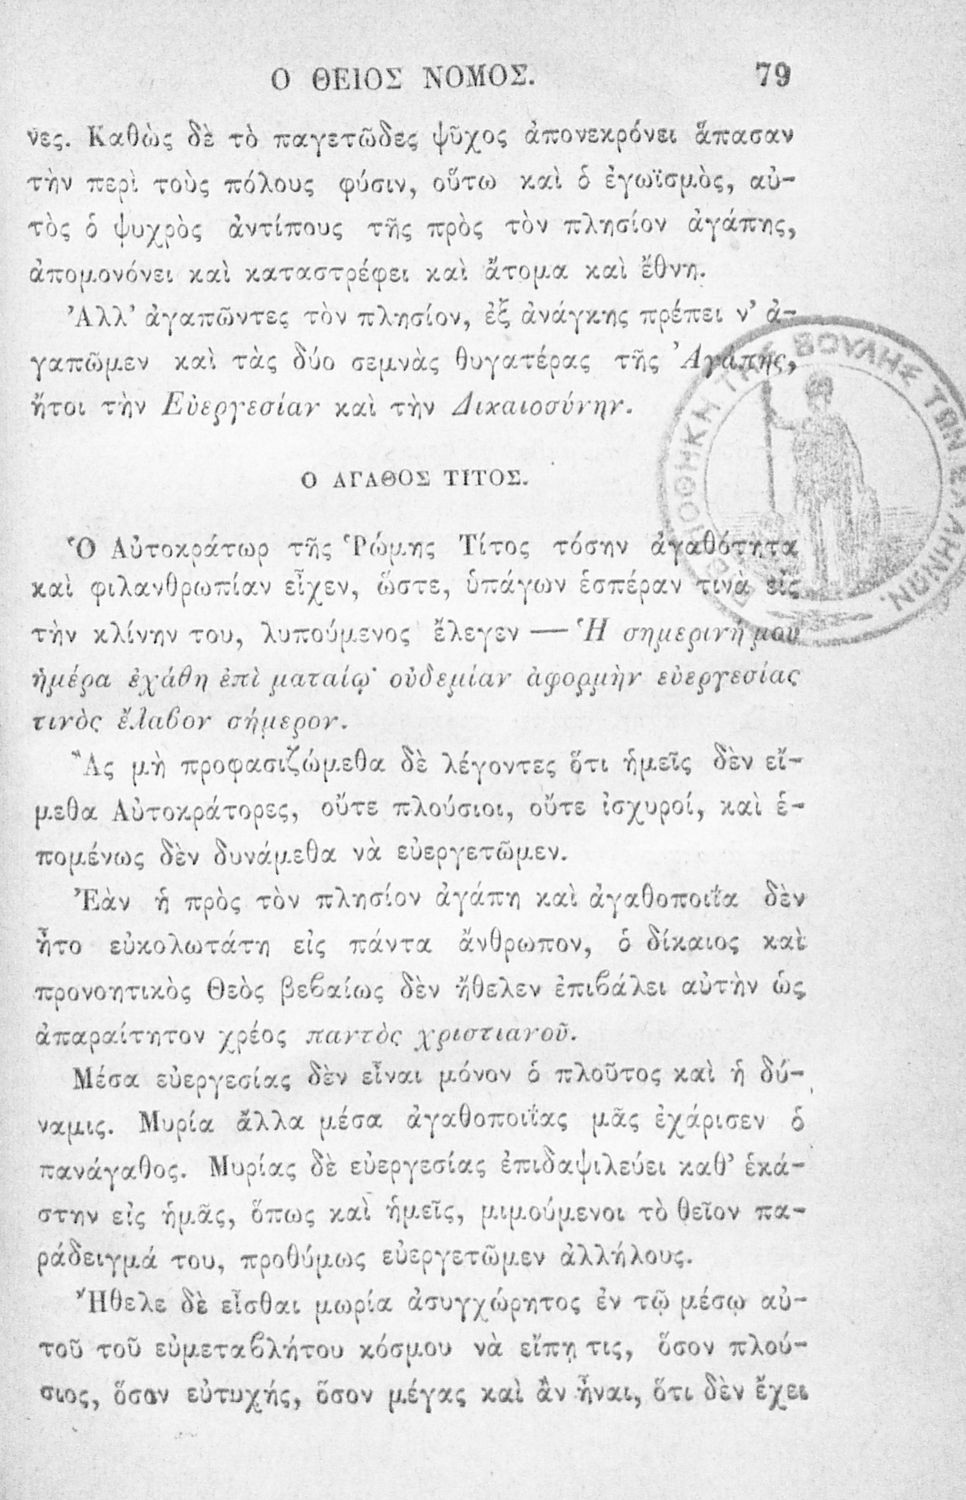 Ο ΘΕΙΟΣ ΝΟΜΟΣ. 79
νες. Καθὼς δὲ τὸ παγετῶδες ψῦχος ἀπονεκρόνει ἅπασαν
τὴν περὶ τοὺς πόλους φύσιν, οὕτω καὶ ὁ ἐγωϊσμὸς, αὐ-
τὸς ὁ ψυχρὸς ἀντίπους τῆς πρὸς τὸν πλησίον ἀγάπης,
ἀπομονόνει καὶ καταστρέφει καὶ ἄτομα καὶ ἔθνη.
Ἀλλ’ ἀγαπῶντες τὸν πλησίον, ἐξ ἀνάγκης πρέπει ν’ ἀ-
γαπῶμεν καὶ τὰς δύο σεμνὰς θυγατέρας τῆς Ἀγάπης,
ἤτοι τὴν Εὐεργεσίαν καὶ τὴν Δικαιοσύνην.
ΒΙΒΛΙΟΘΗΚΗ ΤΗΣ ΒΟΥΛΗΣ ΤΩΝ ΕΛΛΗΝΩΝ.
Ο ΑΓΑΘΟΣ ΤΙΤΟΣ.
Ὁ Αὐτοκράτωρ τῆς Ῥώμης Τίτος τόσην ἀγαθότητα
καὶ φιλανθρωπίαν εἶχεν, ὥστε, ὑπάγων ἑσπέραν τινὰ εἰς
τὴν κλίνην του, λυπούμενος ἔλεγεν — Ἡ σημερινή μου
ἡμέρα ἐχάθη ἐπὶ ματαίῳ· οὐδεμίαν ἀφορμὴν εὐεργεσίας
τινὸς ἔλαβον σήμερον.
Ἂς μὴ προφασιζώμεθα δὲ λέγοντες ὅτι ἡμεῖς δὲν εἴ-
μεθα Αὐτοκράτορες, οὔτε πλούσιοι, οὔτε ἰσχυροί, καὶ ἑ-
πομένως δὲν δυνάμεθα νὰ εὐεργετῶμεν.
Ἐὰν ἡ πρὸς τὸν πλησίον ἀγάπη καὶ ἀγαθοποιΐα δὲν
ἦτο εὐκολωτάτη εἰς πάντα ἄνθρωπον, ὁ δίκαιος καὶ
προνοητικὸς Θεὸς βεϐαίως δὲν ἤθελεν ἐπιϐάλει αὐτὴν ὡς
ἀπαραίτητον χρέος παντὸς χριστιανοῦ.
Μέσα εὐεργεσίας δὲν εἶναι μόνον ὁ πλοῦτος καὶ ἡ δύ-
ναμις. Μυρία ἄλλα μέσα ἀγαθοποιΐας μᾶς ἐχάρισεν ὁ
πανάγαθος. Μυρίας δὲ εὐεργεσίας ἐπιδαψιλεύει καθ’ ἑκά-
στην εἰς ἡμᾶς, ὅπως καὶ ἡμεῖς, μιμούμενοι τὸ θεῖον πα-
ράδειγμά του, προθύμως εὐεργετῶμεν ἀλλήλους.
Ἤθελε δὲ εἶσθαι μωρία ἀσυγχώρητος ἐν τῷ μέσῳ αὐ-
τοῦ τοῦ εὐμεταϐλήτου κόσμου νὰ εἴπῃ τις, ὅσον πλού-
σιος, ὅσον εὐτυχής, ὅσον μέγας καὶ ἂν ἦναι, ὅτι δὲν ἔχει